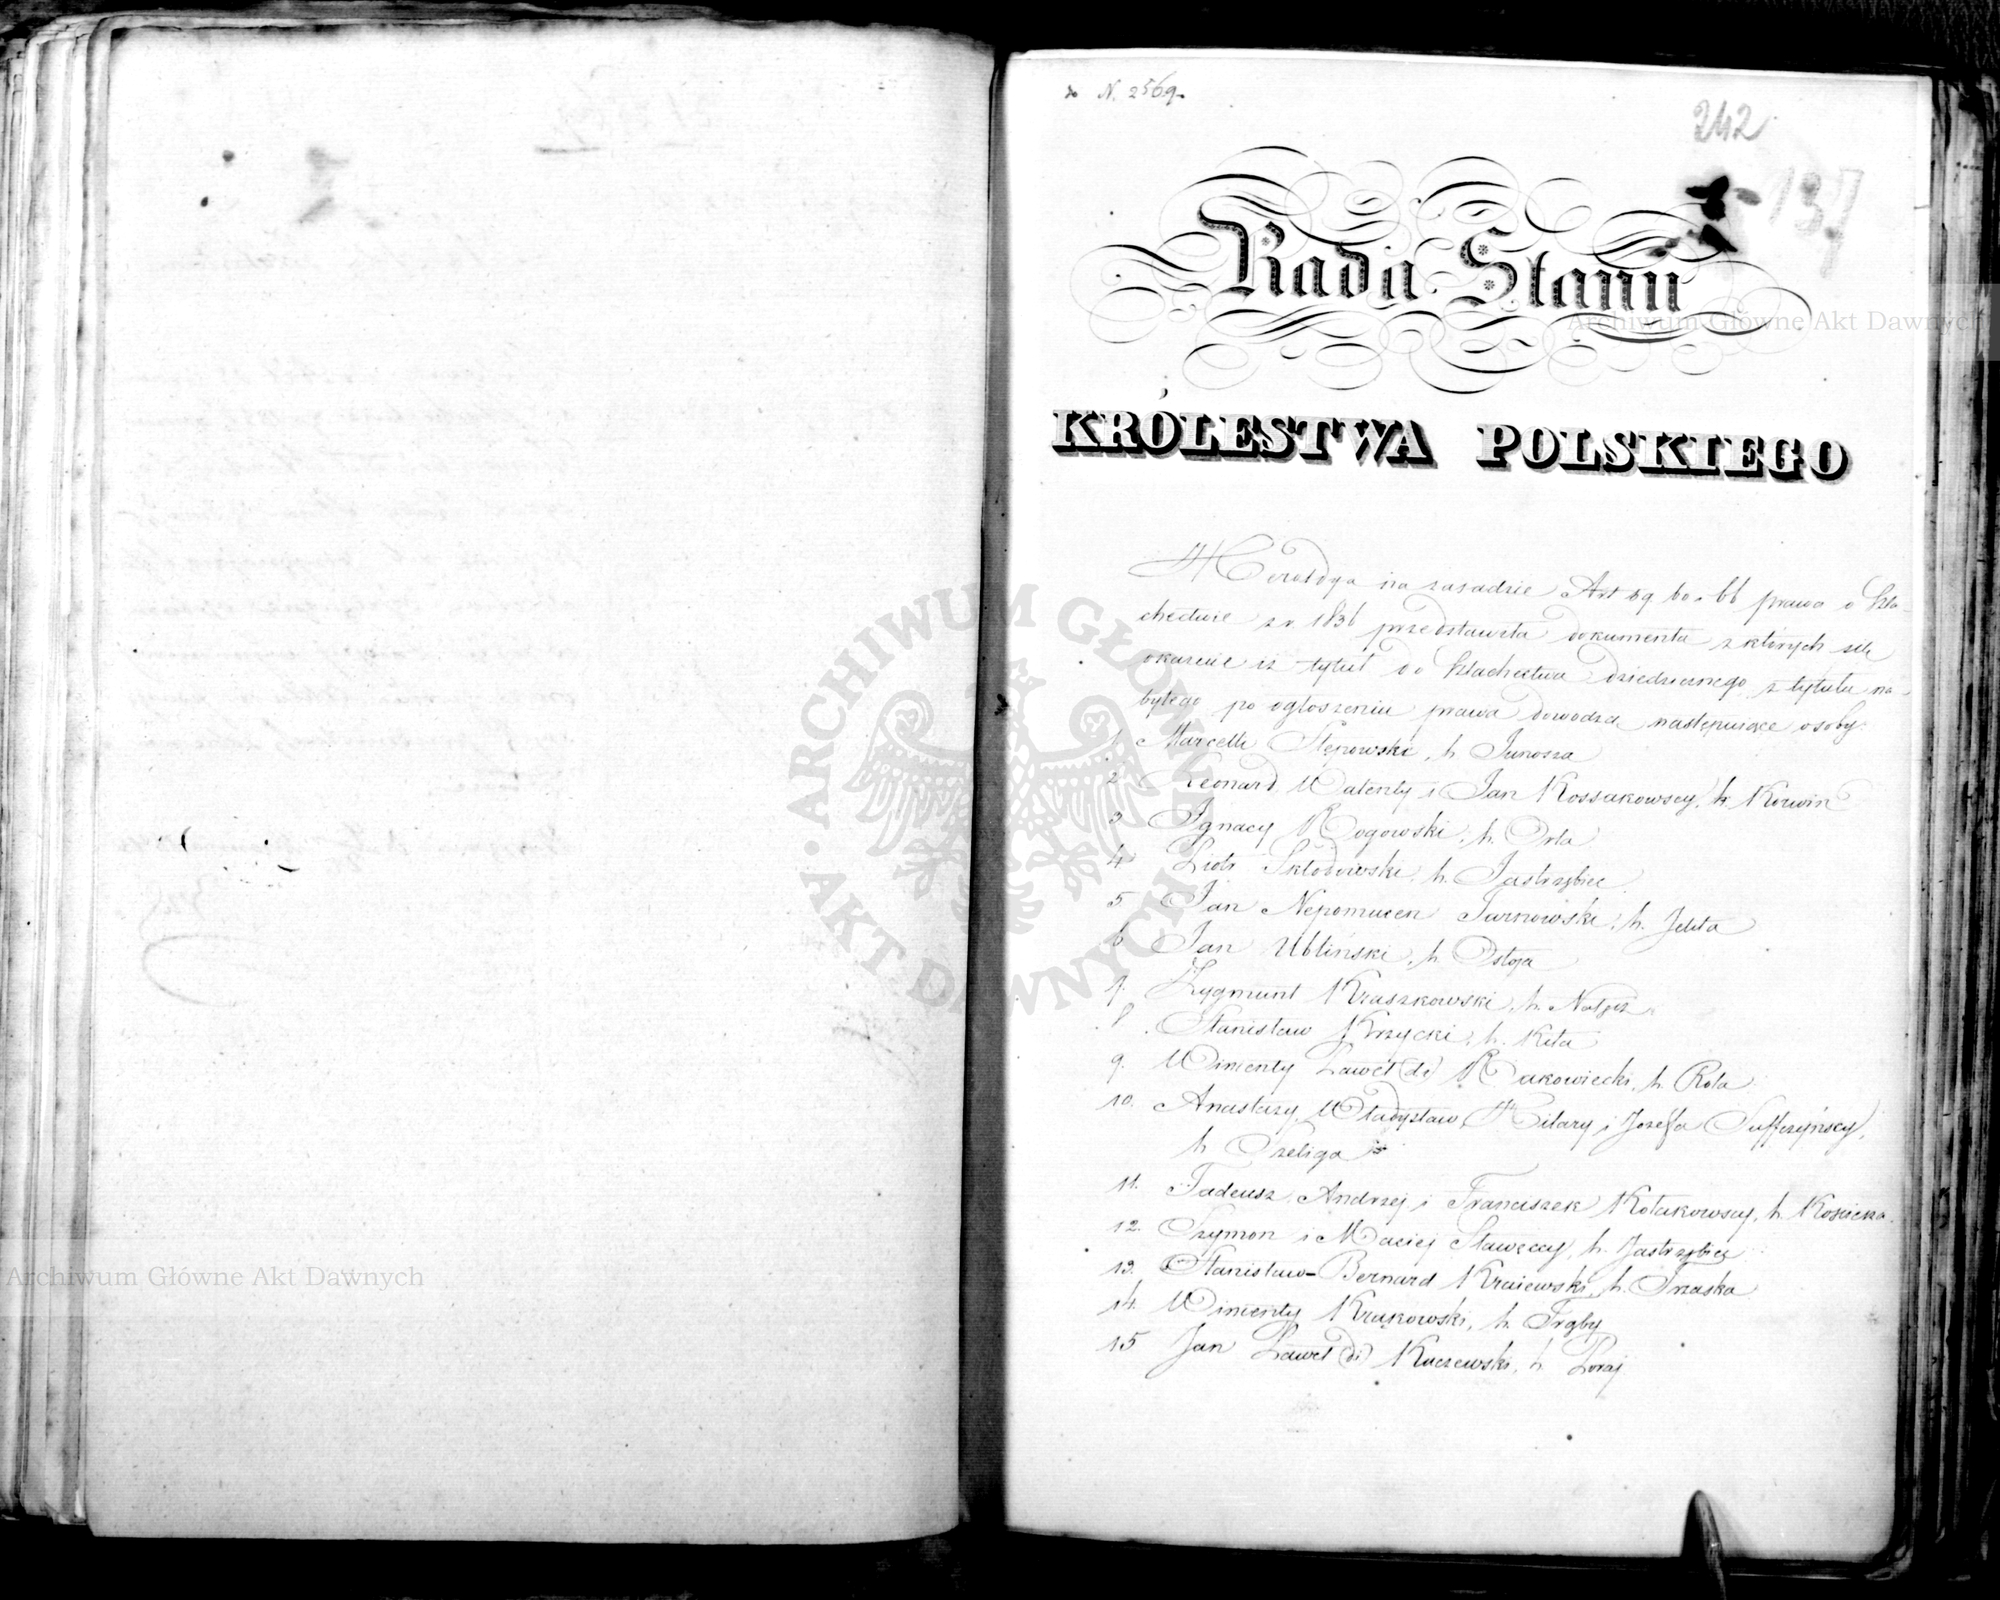 do N. 2569.
242
137
Rada Stanu
KRÓLESTWA POLSKIEGO
Heroldya na zasadzie Art 59. 60. 66 prawa o Szla-
chectwie z r. 1836 przedstawiła dokumenta z których się
okazuie iż tytuł do Szlachectwa dziedzicznego z tytułu na-
bytego po ogłoszeniu prawa dowodzą następuiące osoby.
1. Marcelli Stępowski, h. Junosza
2 Leonard, Walenty i Jan Kossakowscy, h. Korwin
3 Ignacy Rogowski, h. Orla
4 Piotr Skłodowski, h. Jastrzębiec
5 Jan Nepomucen Turnowski, h. Jelita
6 Jan Ubliński, h. Ostoja
7. Zygmunt Kraszkowski, h. Nałęcz
8. Stanisław Krzycki, h. Kita
9. Wincenty Paweł (2i) Rakowiecki, h. Rola
10. Anastazy, Władysław, Hilary i Józefa Suffczyńscy,
h. Szeliga
11. Tadeusz, Andrzej i Franciszek Kołakowscy, h. Kościesza.
12. Szymon i Maciej Sławęccy, h. Jastrzębiec
13. Stanisław-Bernard Kraiewski, h. Trzaska
14. Wincenty Krukowski, h. Trąby
15 Jan Paweł (2i) Kuczewski, h. Poraj
Archiwum Główne Akt Dawnych
ARCHIWUM GŁÓWNE · AKT DAWNYCH ·
Archiwum Główne Akt Dawnych